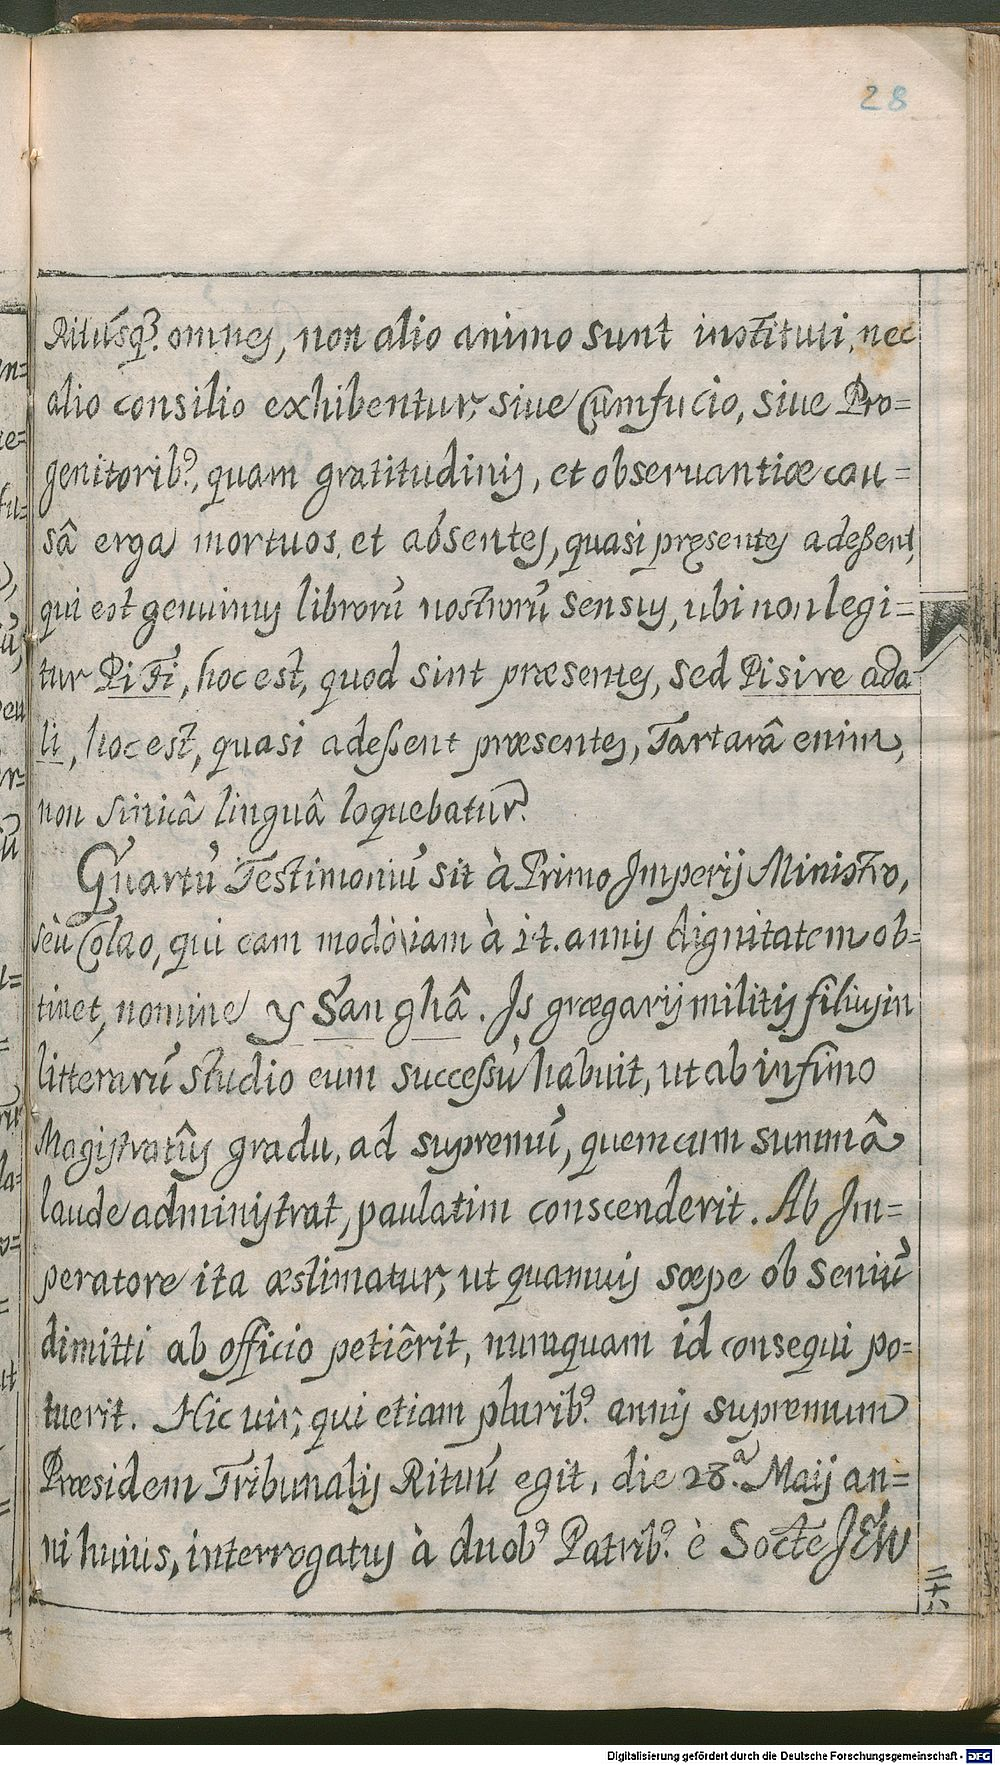 28
Ritusq́ꝫ omnes, non alio animo sunt instituti, nec
alio consilio exhibentur, siue Cumfucio, siue Pro=
genitoribꝰ, quam gratitudinis, et obseruantiæ cau=
sâ erga mortuos, et absentes, quasi pręsentes adeßent,
qui est genuinus librorũ nostrorũ sensus, ubi non legi=
tur Pi Fi, hoc est, quod sint præsentes, sed Pisire ada
li, hoc est, quasi adeßent præsentes, Tartarâ enim,
non sinicâ linguâ loquebatur.
Quartũ Testimoniũ sit à Primo Imperij Ministro,
seù Colao, qui eam modò iam à 1t. annis dignitatem ob=
tinet, nomine Y San ghâ. Is grægarij militis filius in
litterarũ studio eum successũ habuit, ut ab infimo
Magistratûs gradu, ad supremũ, quem cum summâ
laude administrat, paulatim conscenderit. Ab Im=
peratore ita æstimatur, ut quamuis sæpe ob seniũ
dimitti ab officio petiêrit, numquam id consequi po=
tuerit. Hic uir, qui etiam pluribꝰ annis supremum
Præsidem Tribunalis Rituũ egit, die 28.ᵃ Maij an=
ni huius, interrogatus à duobꝰ Patribꝰ è Socte JESV
二十八
Digitalisierung gefördert durch die Deutsche Forschungsgemeinschaft - DFG